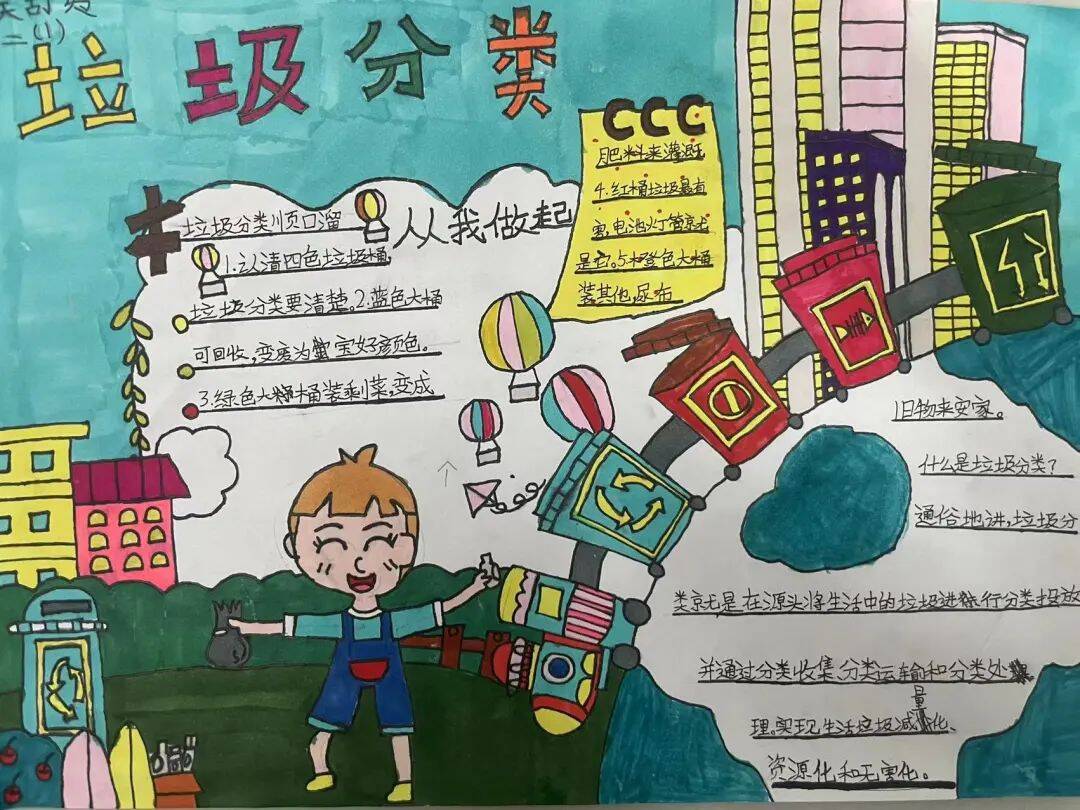 二(1)
垃圾分类
从我做起
垃圾分类顺口溜
1.认清四色垃圾桶,
垃圾分类要清楚。2.蓝色大桶
可回收,变废为宝好颜色。
3.绿色大桶装剩菜,变成
CCC
肥料来灌溉
4.红桶垃圾最有
害,电池灯管就
是它。5.橙色大桶
装其他,尿布
旧物来安家。
什么是垃圾分类?
通俗地讲,垃圾分
类就是在源头将生活中的垃圾进行分类投放
并通过分类收集、分类运输和分类处
理。实现生活垃圾减量化、
资源化和无害化。